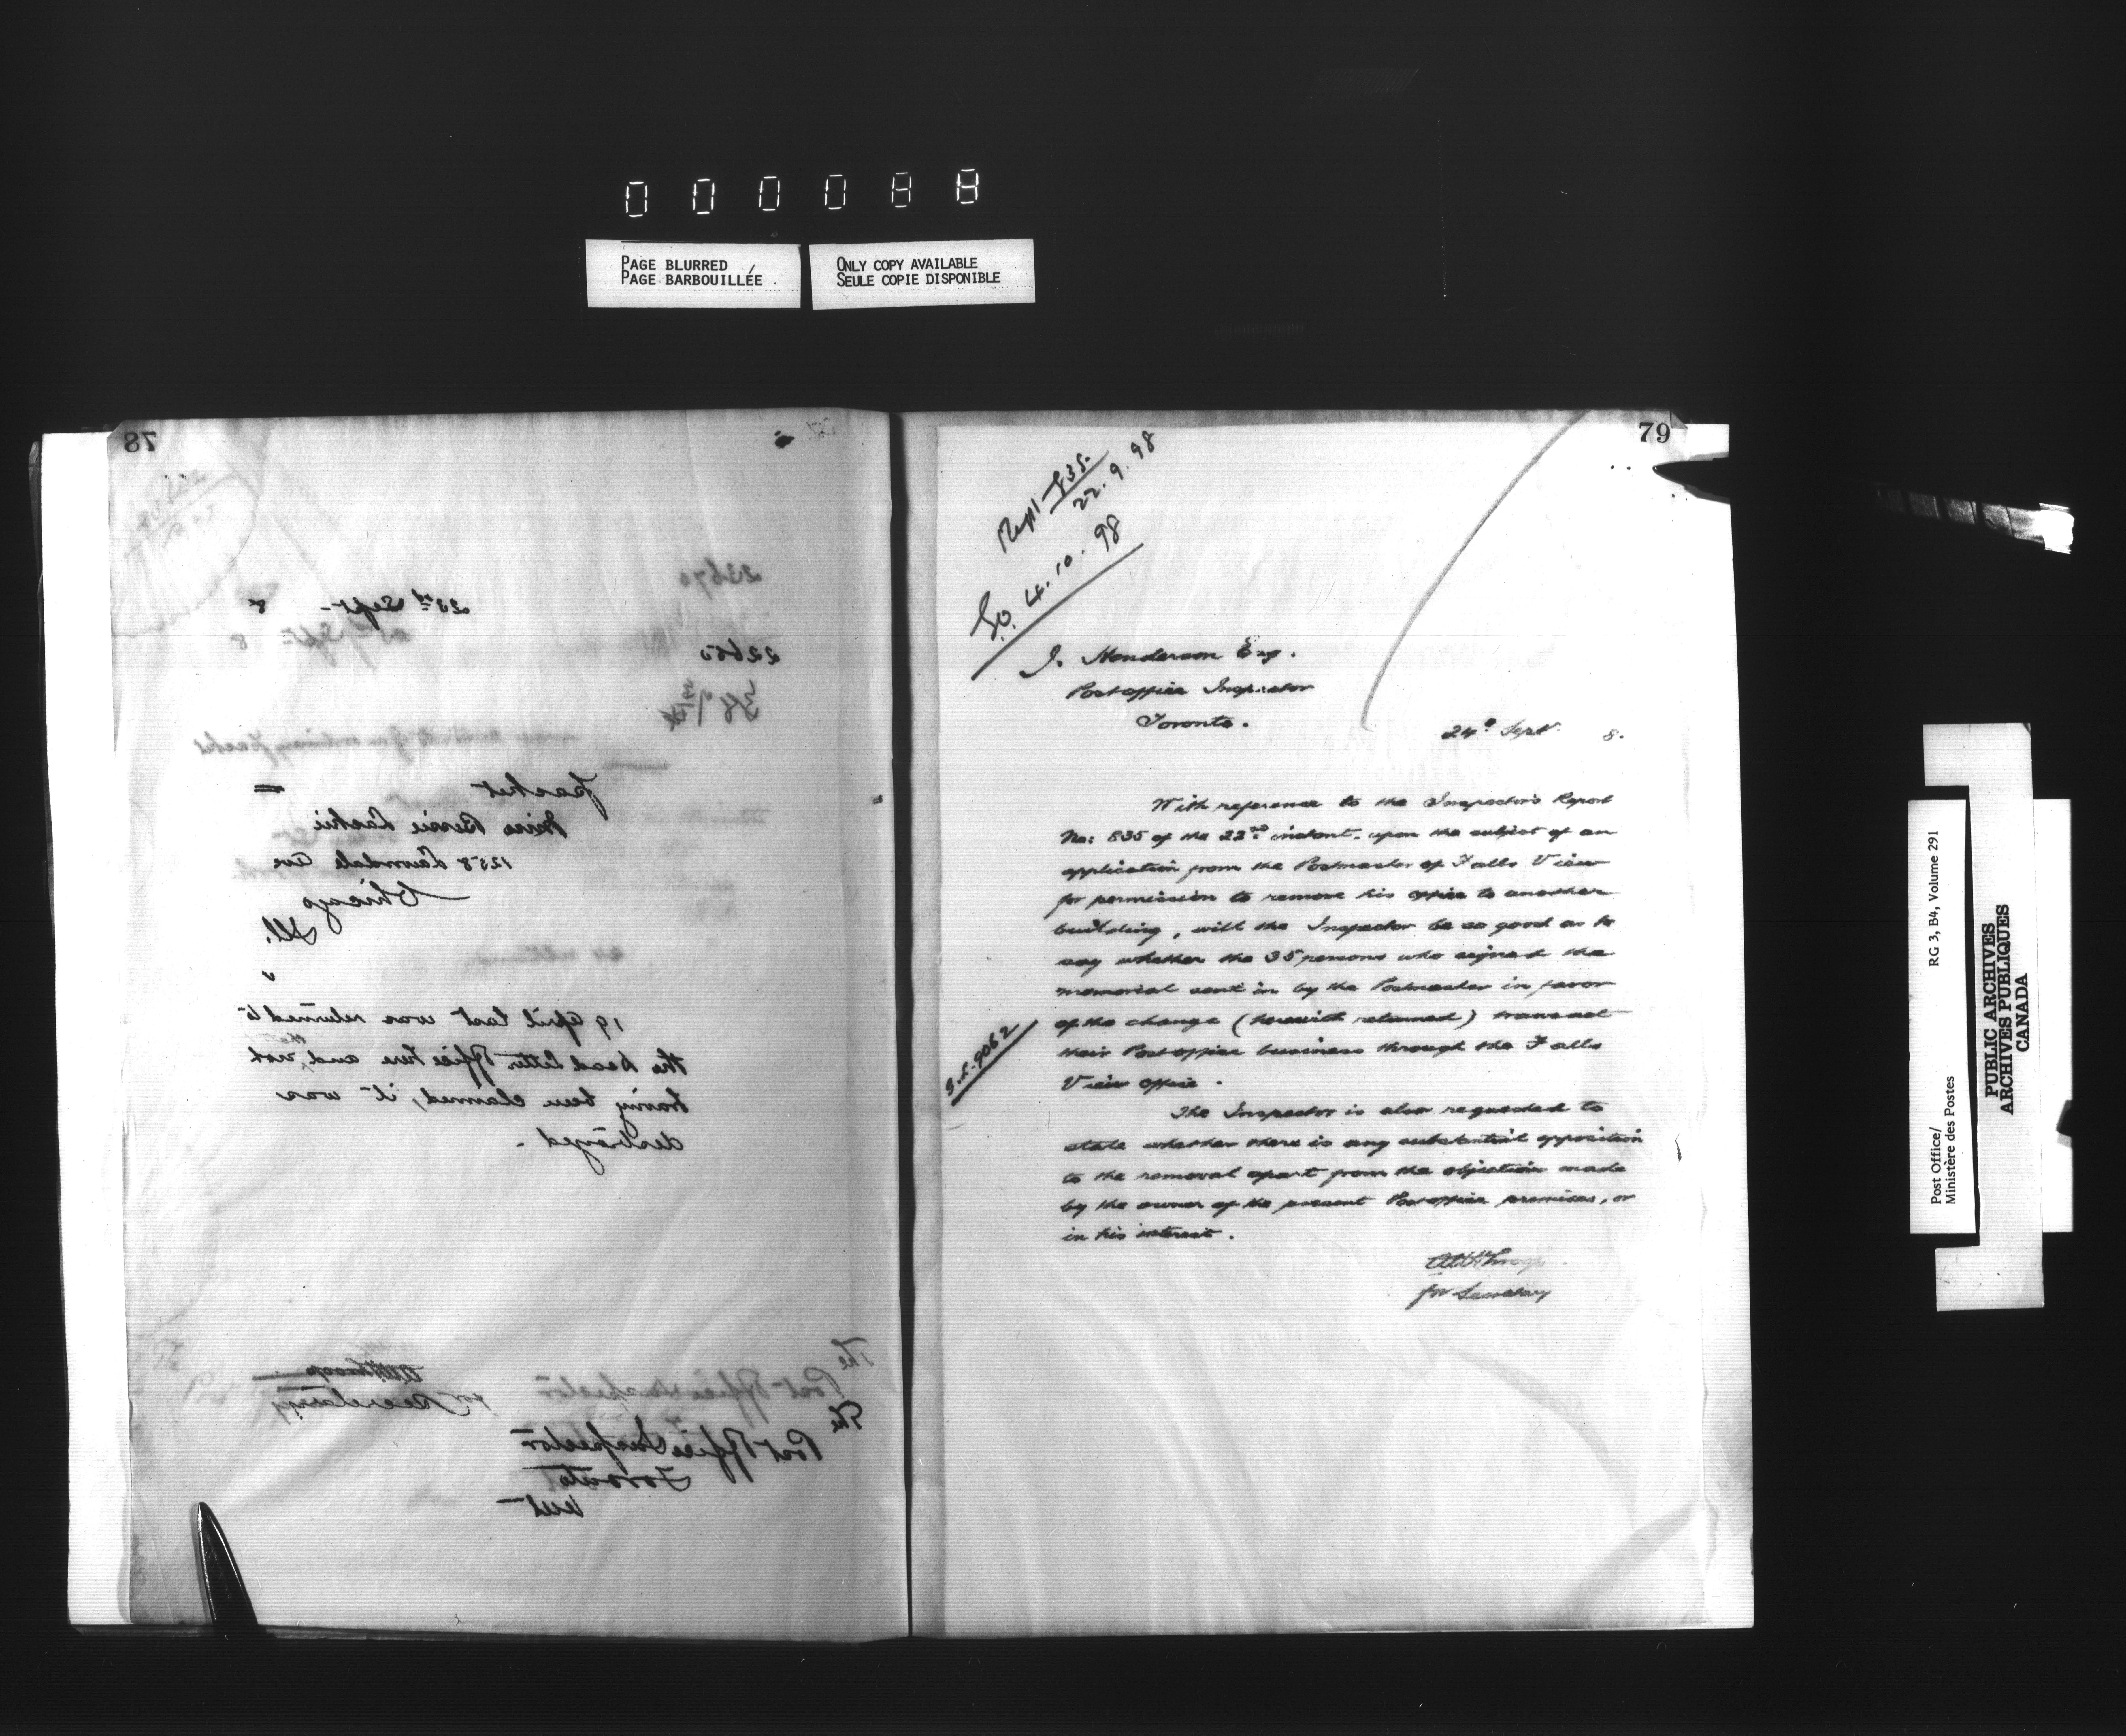 000088
PAGE BLURRED
PAGE BARBOUILLÉE
ONLY COPY AVAILABLE
SEULE COPIE DISPONIBLE
78
23670
23rd Sept - 8
22650
packet
Miss Bessie Laskii
1258 Lawndale Ave
Chicago
Ill.
19 April last was returned to
the Dead Letter Office here and, not
having been claimed, it was
destroyed -
for Secretary
The
Post Office Inspector
The
Post Office Inspector
Toronto
79
Rept 835.
22.9.98
4.10.98
J. Henderson Esq.
Post office Inspector
Toronto.
24th Sept. 8.
With reference to the Inspector's Report
No: 835 of the 22nd instant, upon the subject of an
application from the Postmaster of Falls View
for permission to remove his office to another
building, will the Inspector be so good as to
say whether the 35 persons who signed the
memorial sent in by the Postmaster in favor
of the change (herewith returned) transact
their Post office business through the Falls
View office.
9062
The Inspector is also requested to
state whether there is any substantial opposition
to the removal apart from the objection made
by the owner of the present Post office premises, or
in his interest.
for Secretary
Post Office/
Ministère des Postes
RG 3, B4, Volume 291
PUBLIC ARCHIVES
ARCHIVES PUBLIQUES
CANADA